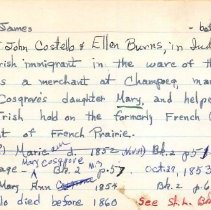 James
f John Costello & Ellen Burns, in Ind
rish immigrant in the wave of th
s a merchant at Champoeg, mar
Cosgrove's daughter Mary, and helpe
Irish nod on the formerly French
t of French Prairie.
) Marie d. 1852 Bk. 2 p.5
Mary Cosgrove
age - Bk. 2 p.57 Oct. 29, 1853
Mary Ann 1854 Bk. 2 p.6
lo died before 1860 See St. L.